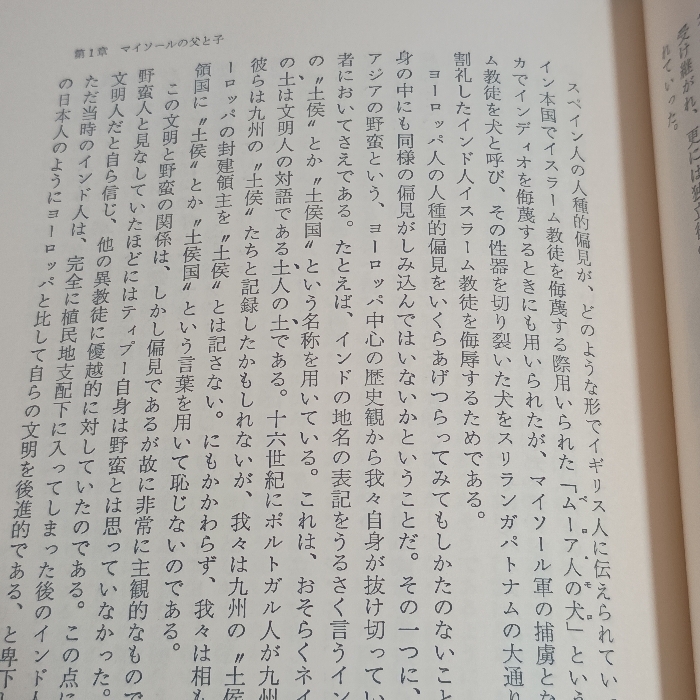 第1章　マイソールの父と子
スペイン人の人種的偏見が、どのような形でイギリス人に伝えられてい
イン本国でイスラーム教徒を侮蔑する際用いられた「ムーア人の犬」という
ペロ・モロ
カでインディオを侮蔑するときにも用いられたが、マイソール軍の捕虜とな
ム教徒を犬と呼び、その性器を切り裂いた犬をスリランガパトナムの大通り
割礼したインド人イスラーム教徒を侮辱するためである。
ヨーロッパ人の人種的偏見をいくらあげつらってみてもしかたのないこと
身の中にも同様の偏見がしみ込んではいないかということだ。その一つに、
アジアの野蛮という、ヨーロッパ中心の歴史観から我々自身が抜け切ってい
者においてさえである。たとえば、インドの地名の表記をうるさく言うイン
の〝土侯〟とか〝土侯国〟という名称を用いている。これは、おそらくネイ
の土は文明人の対語である土人の土である。十六世紀にポルトガル人が九州
彼らは九州の〝土侯〟たちと記録したかもしれないが、我々は九州の〝土侯
ーロッパの封建領主を〝土侯〟とは記さない。にもかかわらず、我々は相も
領国に〝土侯〟とか〝土侯国〟という言葉を用いて恥じないのである。
この文明と野蛮の関係は、しかし偏見であるが故に非常に主観的なもので
野蛮人と見なしていたほどにはティプー自身は野蛮とは思っていなかった。
文明人だと自ら信じ、他の異教徒に優越的に対していたのである。この点に
ただ当時のインド人は、完全に植民地支配下に入ってしまった後のインド人
の日本人のようにヨーロッパと比して自らの文明を後進的である、と卑下し
受け継がれ、更には
れていった。